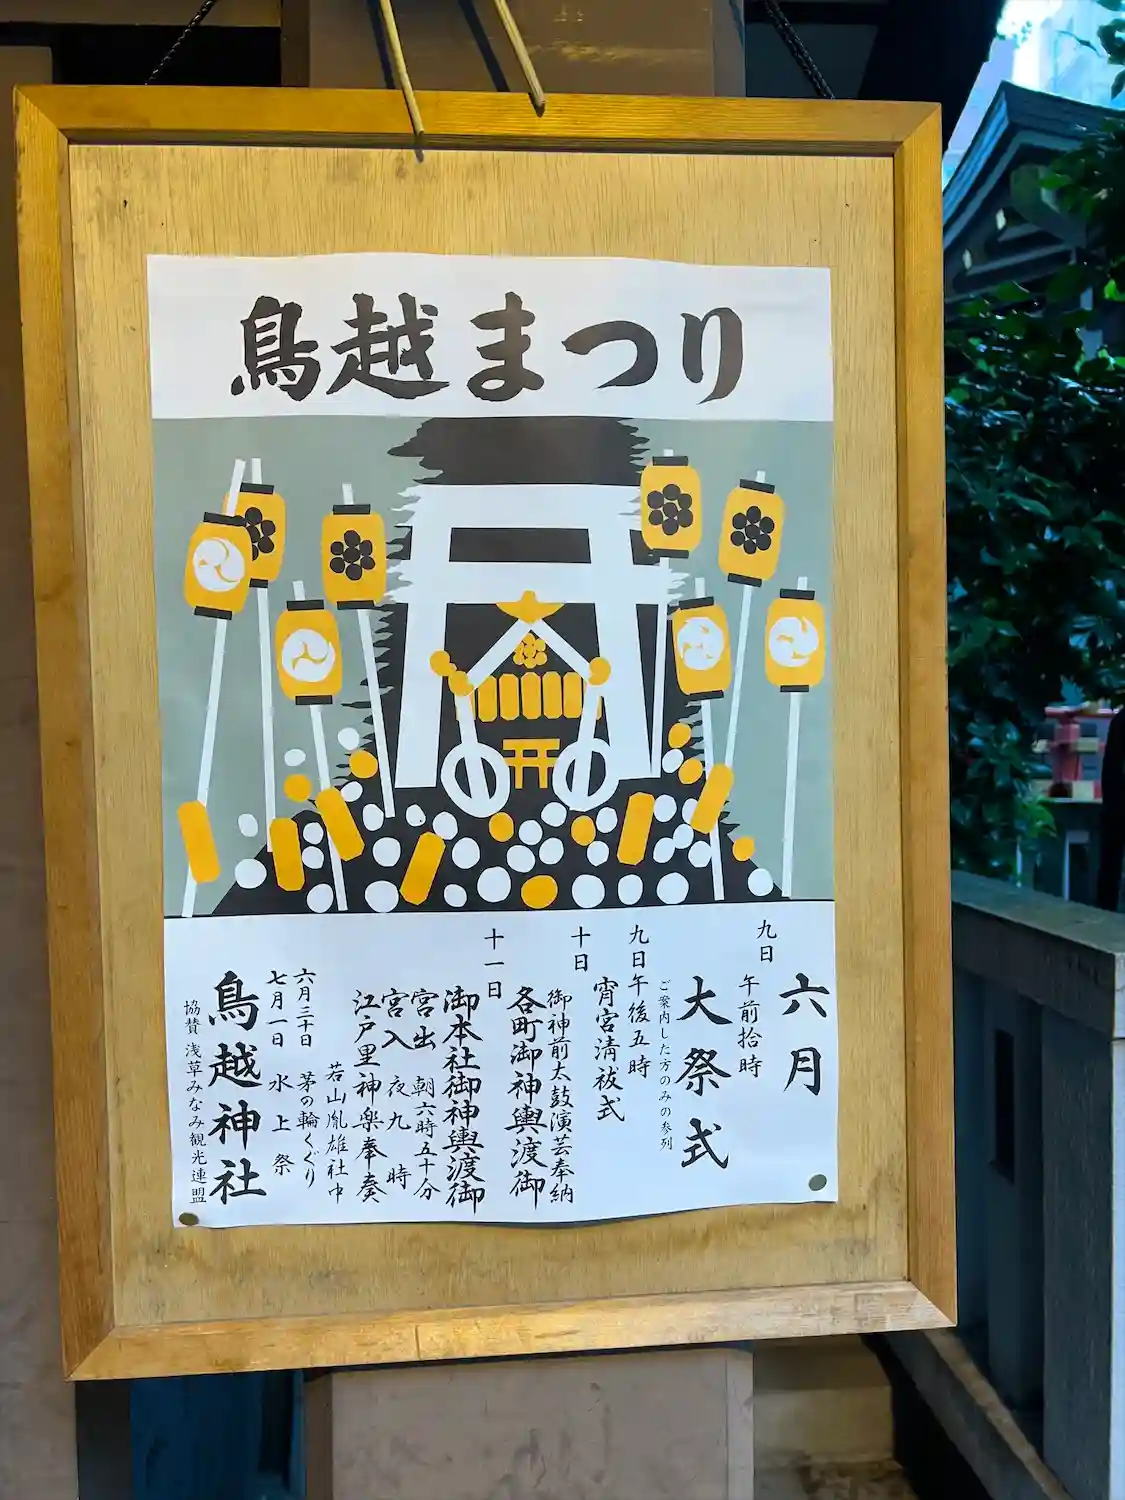 鳥越まつり
六月
九日
午前拾時
大祭式
ご案内した方のみの参列
九日午後五時
宵宮清祓式
十日
御神前太鼓演芸奉納
各町御神輿渡御
十一日
御本社御神輿渡御
宮出 朝六時五十分
宮入 夜九時
江戸里神楽奉奏
若山胤雄社中
六月三十日 茅の輪くぐり
七月一日 水上祭
鳥越神社
協賛 浅草みなみ観光連盟